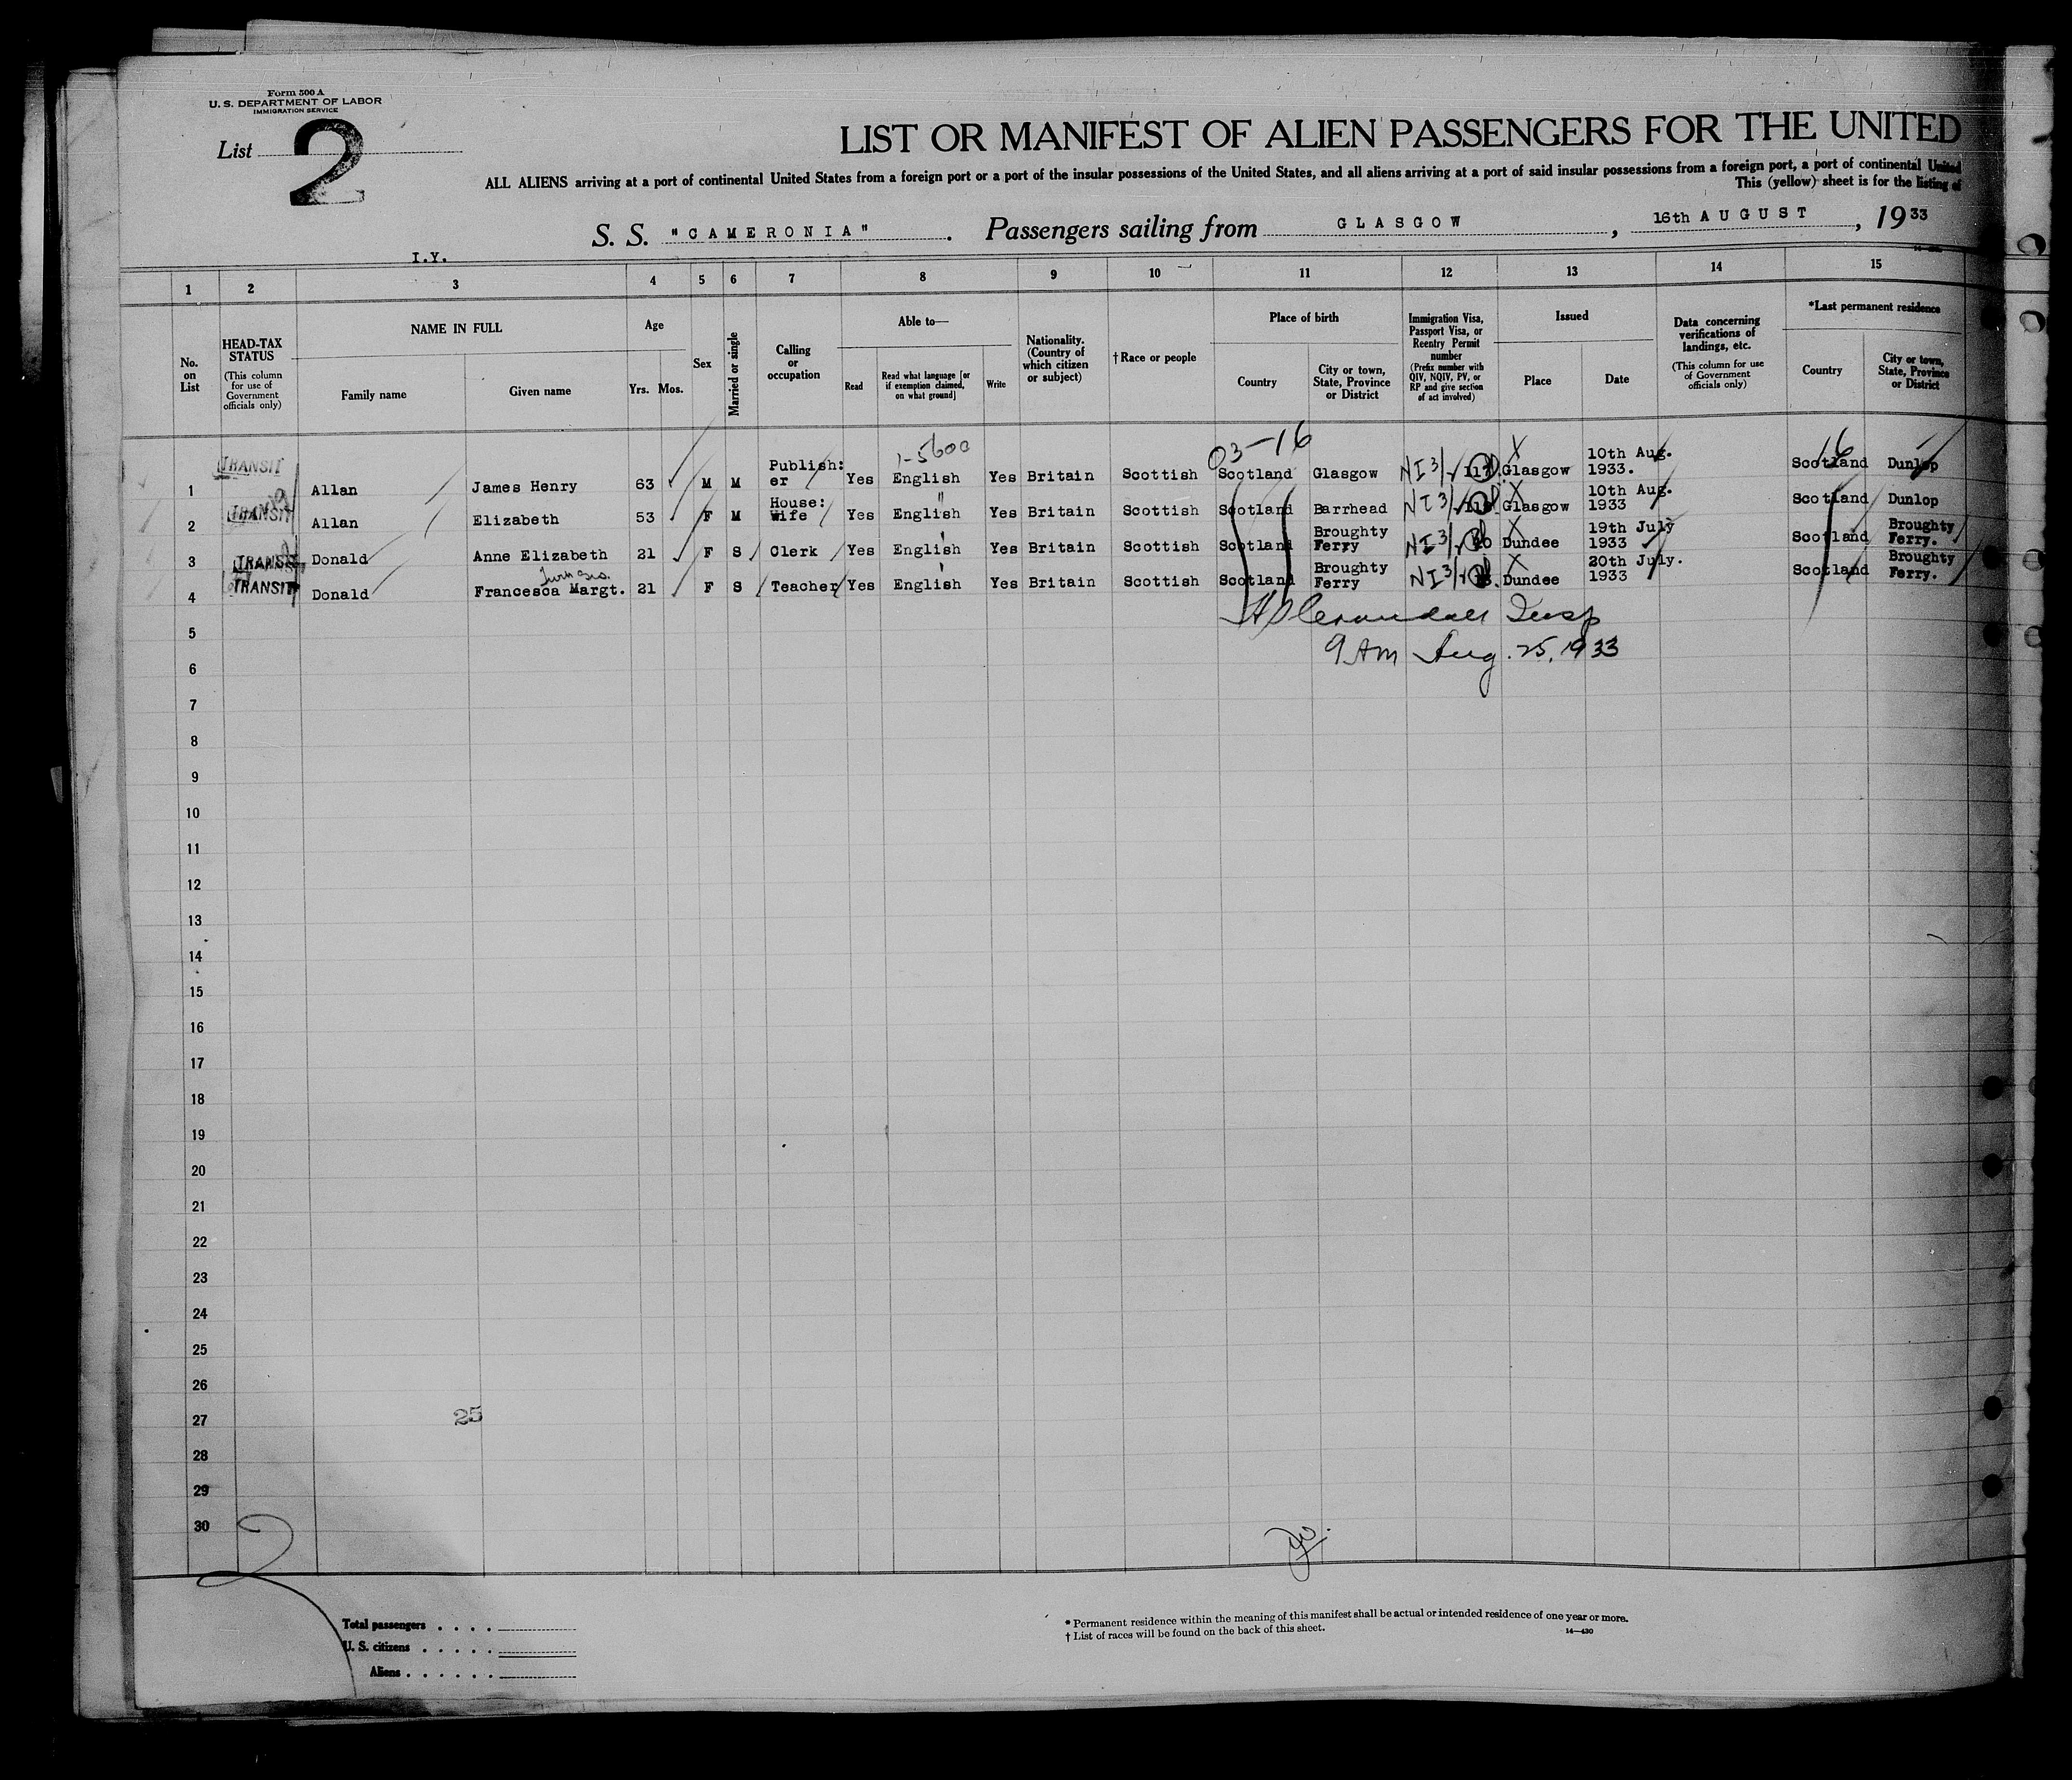 Form 500 A
U. S. DEPARTMENT OF LABOR
IMMIGRATION SERVICE
List 2
LIST OR MANIFEST OF ALIEN PASSENGERS FOR THE UNITED
ALL ALIENS arriving at a port of continental United States from a foreign port or a port of the insular possessions of the United States, and all aliens arriving at a port of said insular possessions from a foreign port, a port of continental United
This (yellow) sheet is for the listing of
S. S. "CAMERONIA". Passengers sailing from GLASGOW, 16th AUGUST, 1933
I.Y.
1 2 3 4 5 6 7 8 9 10 11 12 13 14 15
No. on List
HEAD-TAX STATUS
(This column for use of Government officials only)
NAME IN FULL
Family name
Given name
Age
Yrs. Mos.
Sex
Married or single
Calling or occupation
Able to—
Read
Read what language [or if exemption claimed, on what ground]
Write
Nationality. (Country of which citizen or subject)
†Race or people
Place of birth
Country
City or town, State, Province or District
Immigration Visa, Passport Visa, or Reentry Permit number
(Prefix number with QIV, NQIV, PV, or RP and give section of act involved)
Issued
Place
Date
Data concerning verifications of landings, etc.
(This column for use of Government officials only)
*Last permanent residence
Country
City or town, State, Province or District
1-5600
03-16
16
1 TRANSIT Allan James Henry 63 M M Publish:er Yes English Yes Britain Scottish Scotland Glasgow NI 3/ Glasgow 10th Aug. 1933. Scotland Dunlop
2 TRANSIT Allan Elizabeth 53 F M House:wife Yes English Yes Britain Scottish Scotland Barrhead NI 3/ Glasgow 10th Aug. 1933 Scotland Dunlop
3 TRANSIT Donald Anne Elizabeth 21 F S Clerk Yes English Yes Britain Scottish Scotland Broughty Ferry NI 3/ Dundee 19th July 1933 Scotland Broughty Ferry.
4 TRANSIT Donald Francesca Margt. 21 F S Teacher Yes English Yes Britain Scottish Scotland Broughty Ferry NI 3/ Dundee 20th July. 1933 Scotland Broughty Ferry.
5
Insp
6
9 AM Aug. 25, 1933
7
8
9
10
11
12
13
14
15
16
17
18
19
20
21
22
23
24
25
26
27
25
28
29
30
2
Total passengers . . . .
U. S. citizens . . . . .
Aliens . . . . . .
* Permanent residence within the meaning of this manifest shall be actual or intended residence of one year or more.
† List of races will be found on the back of this sheet.
14—430